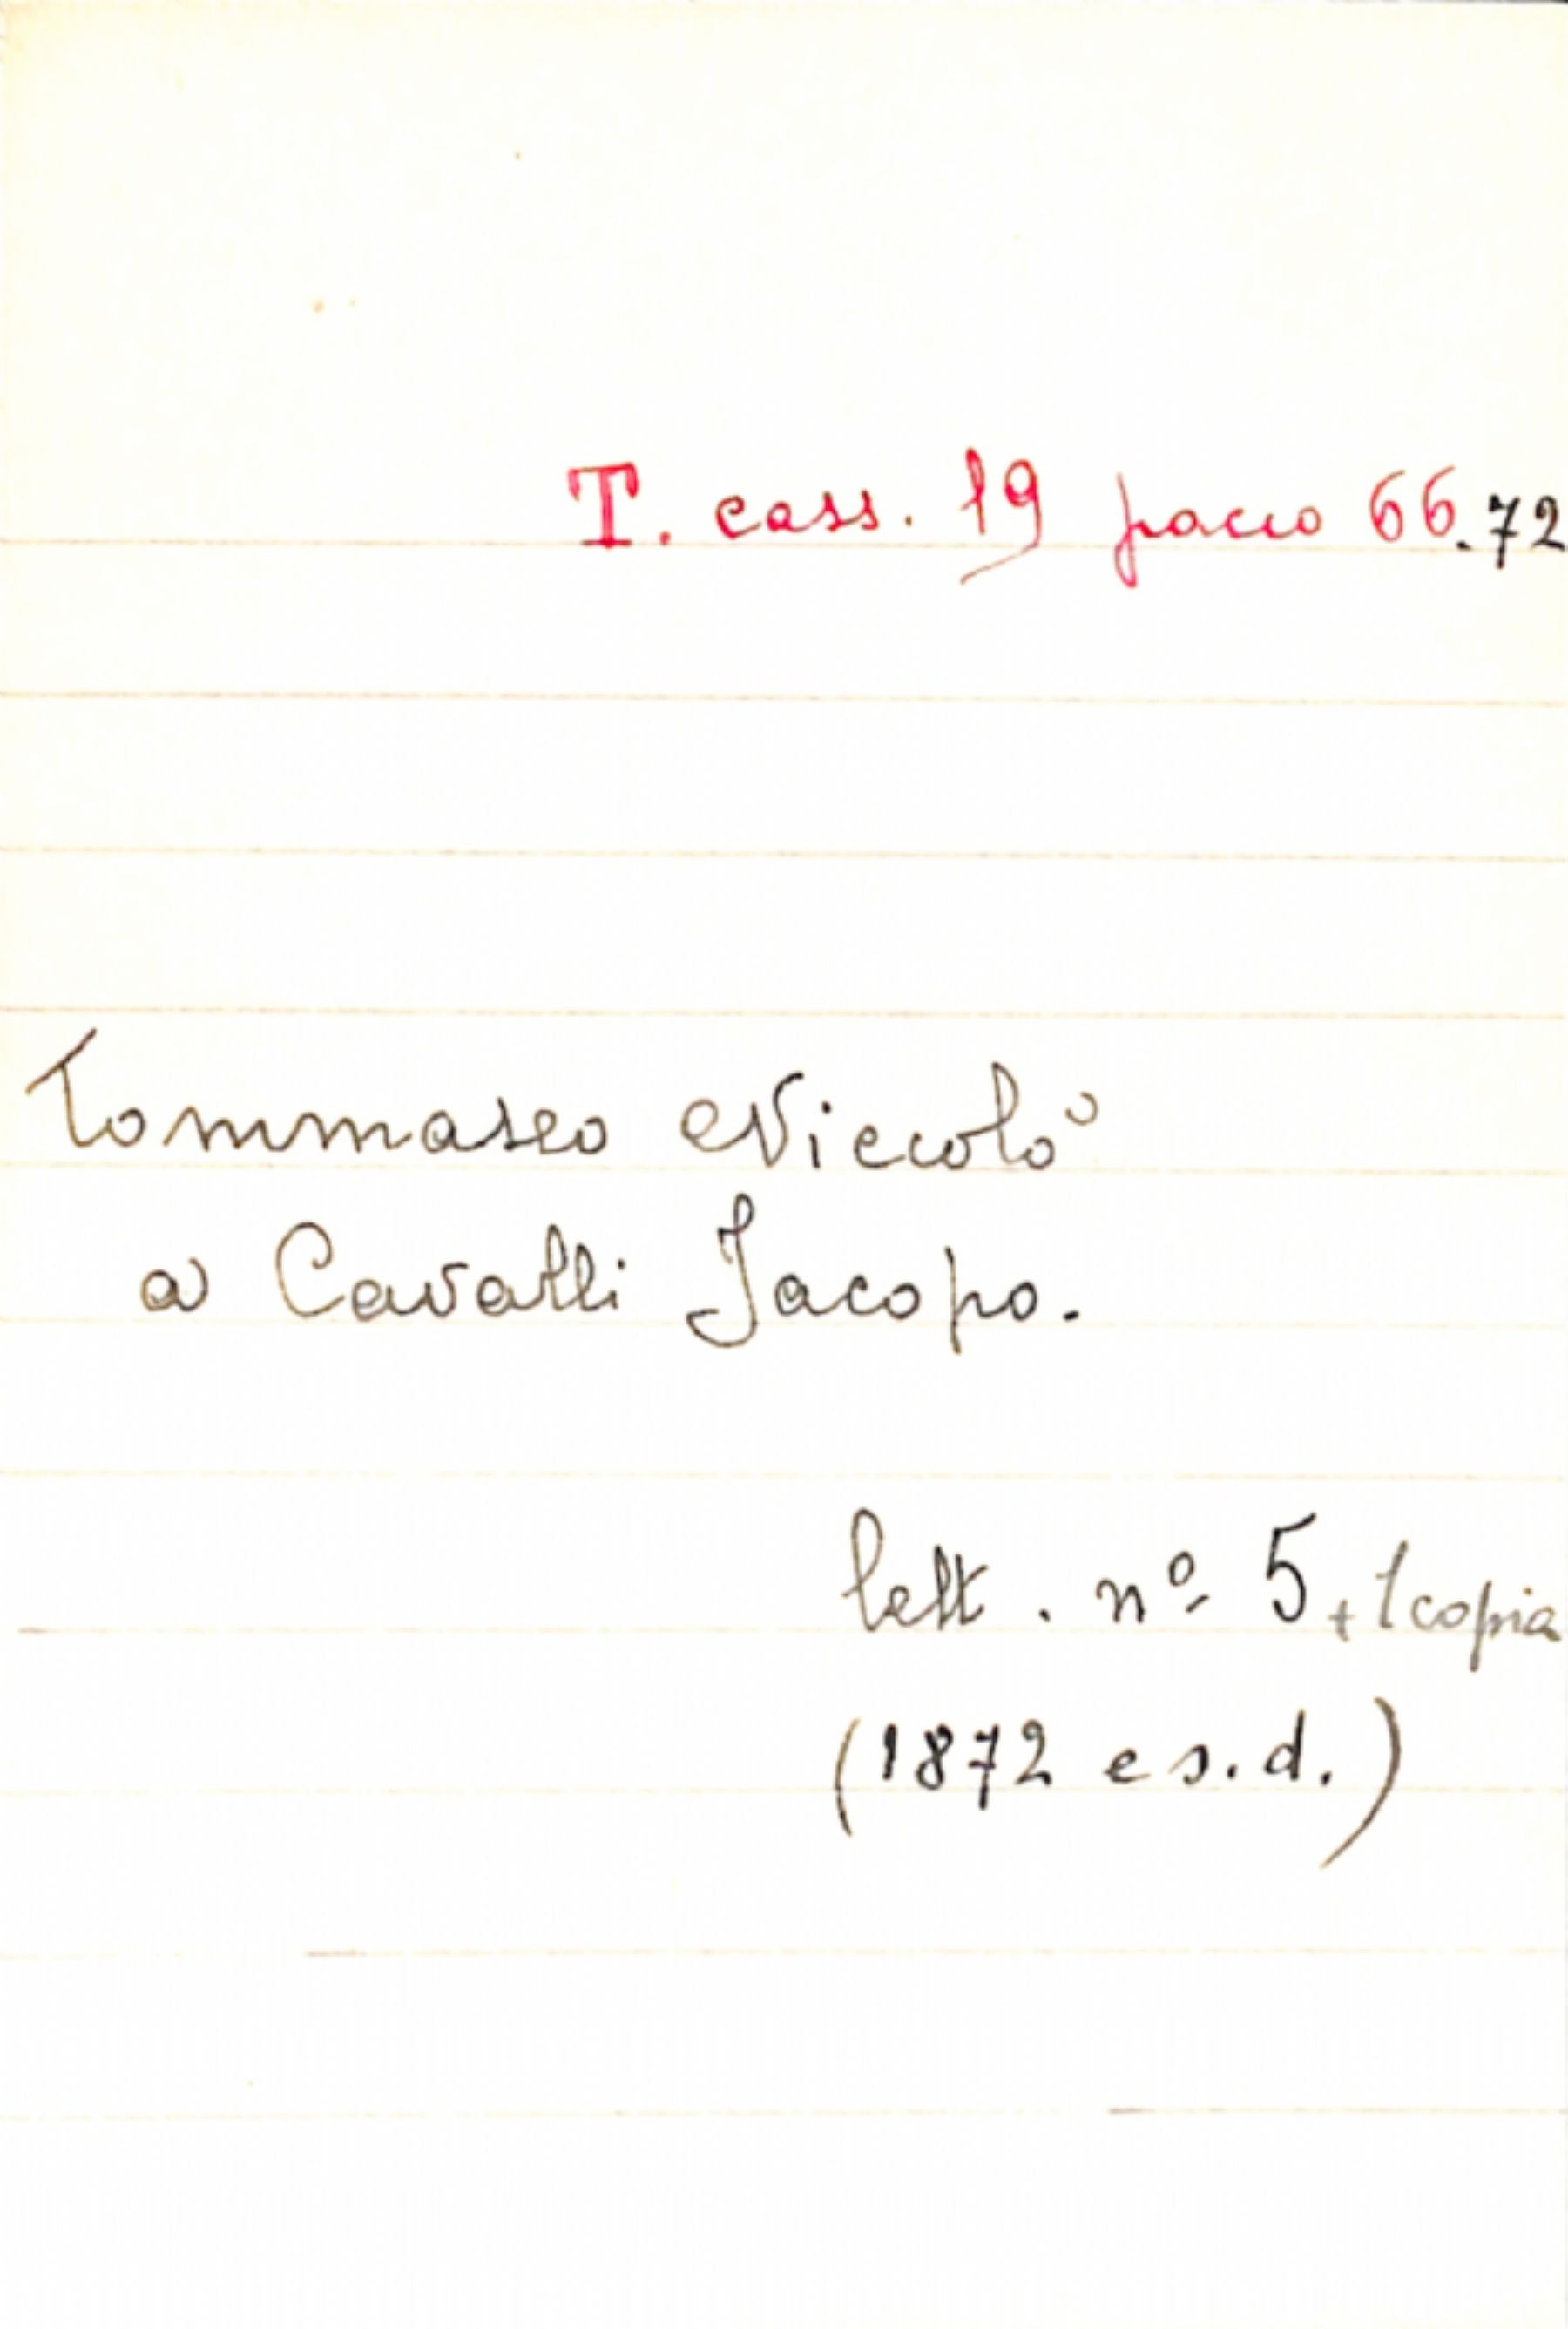 T. cass. 19 pacco 66.72
Tommaseo Niccolò
a Cavalli Jacopo.
lett. nº 5 + 1 copia
(1872 e s.d.)